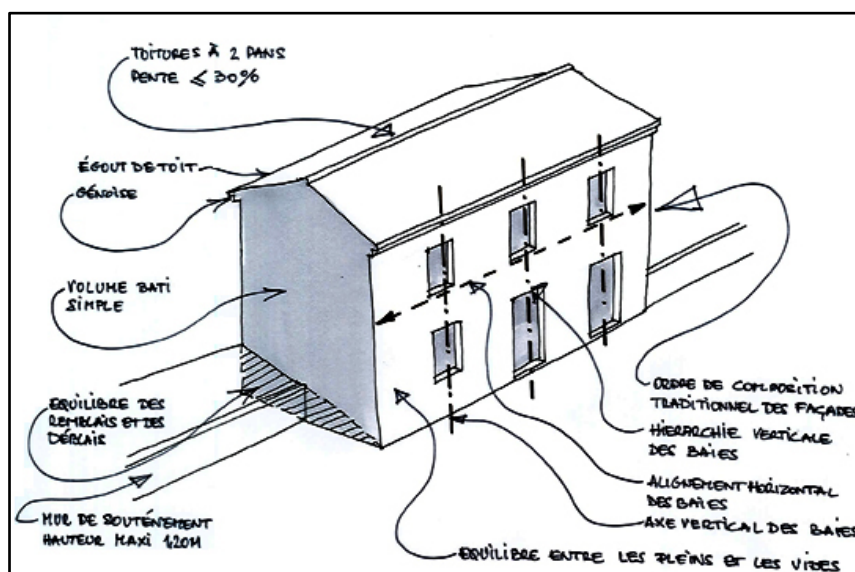 TOITURES À 2 PANS
PENTE ⩽ 30%
ÉGOUT DE TOIT
GÉNOISE
VOLUME BATI
SIMPLE
EQUILIBRE DES
REMBLAIS ET DES
DÉBLAIS
MUR DE SOUTÉNEMENT
HAUTEUR MAXI 1,20M
ORDRE DE COMPOSITION
TRADITIONNEL DES FAÇADES
HIERARCHIE VERTICALE
DES BAIES
ALIGNEMENT HORIZONTAL
DES BAIES
AXE VERTICAL DES BAIES
EQUILIBRE ENTRE LES PLEINS ET LES VIDES